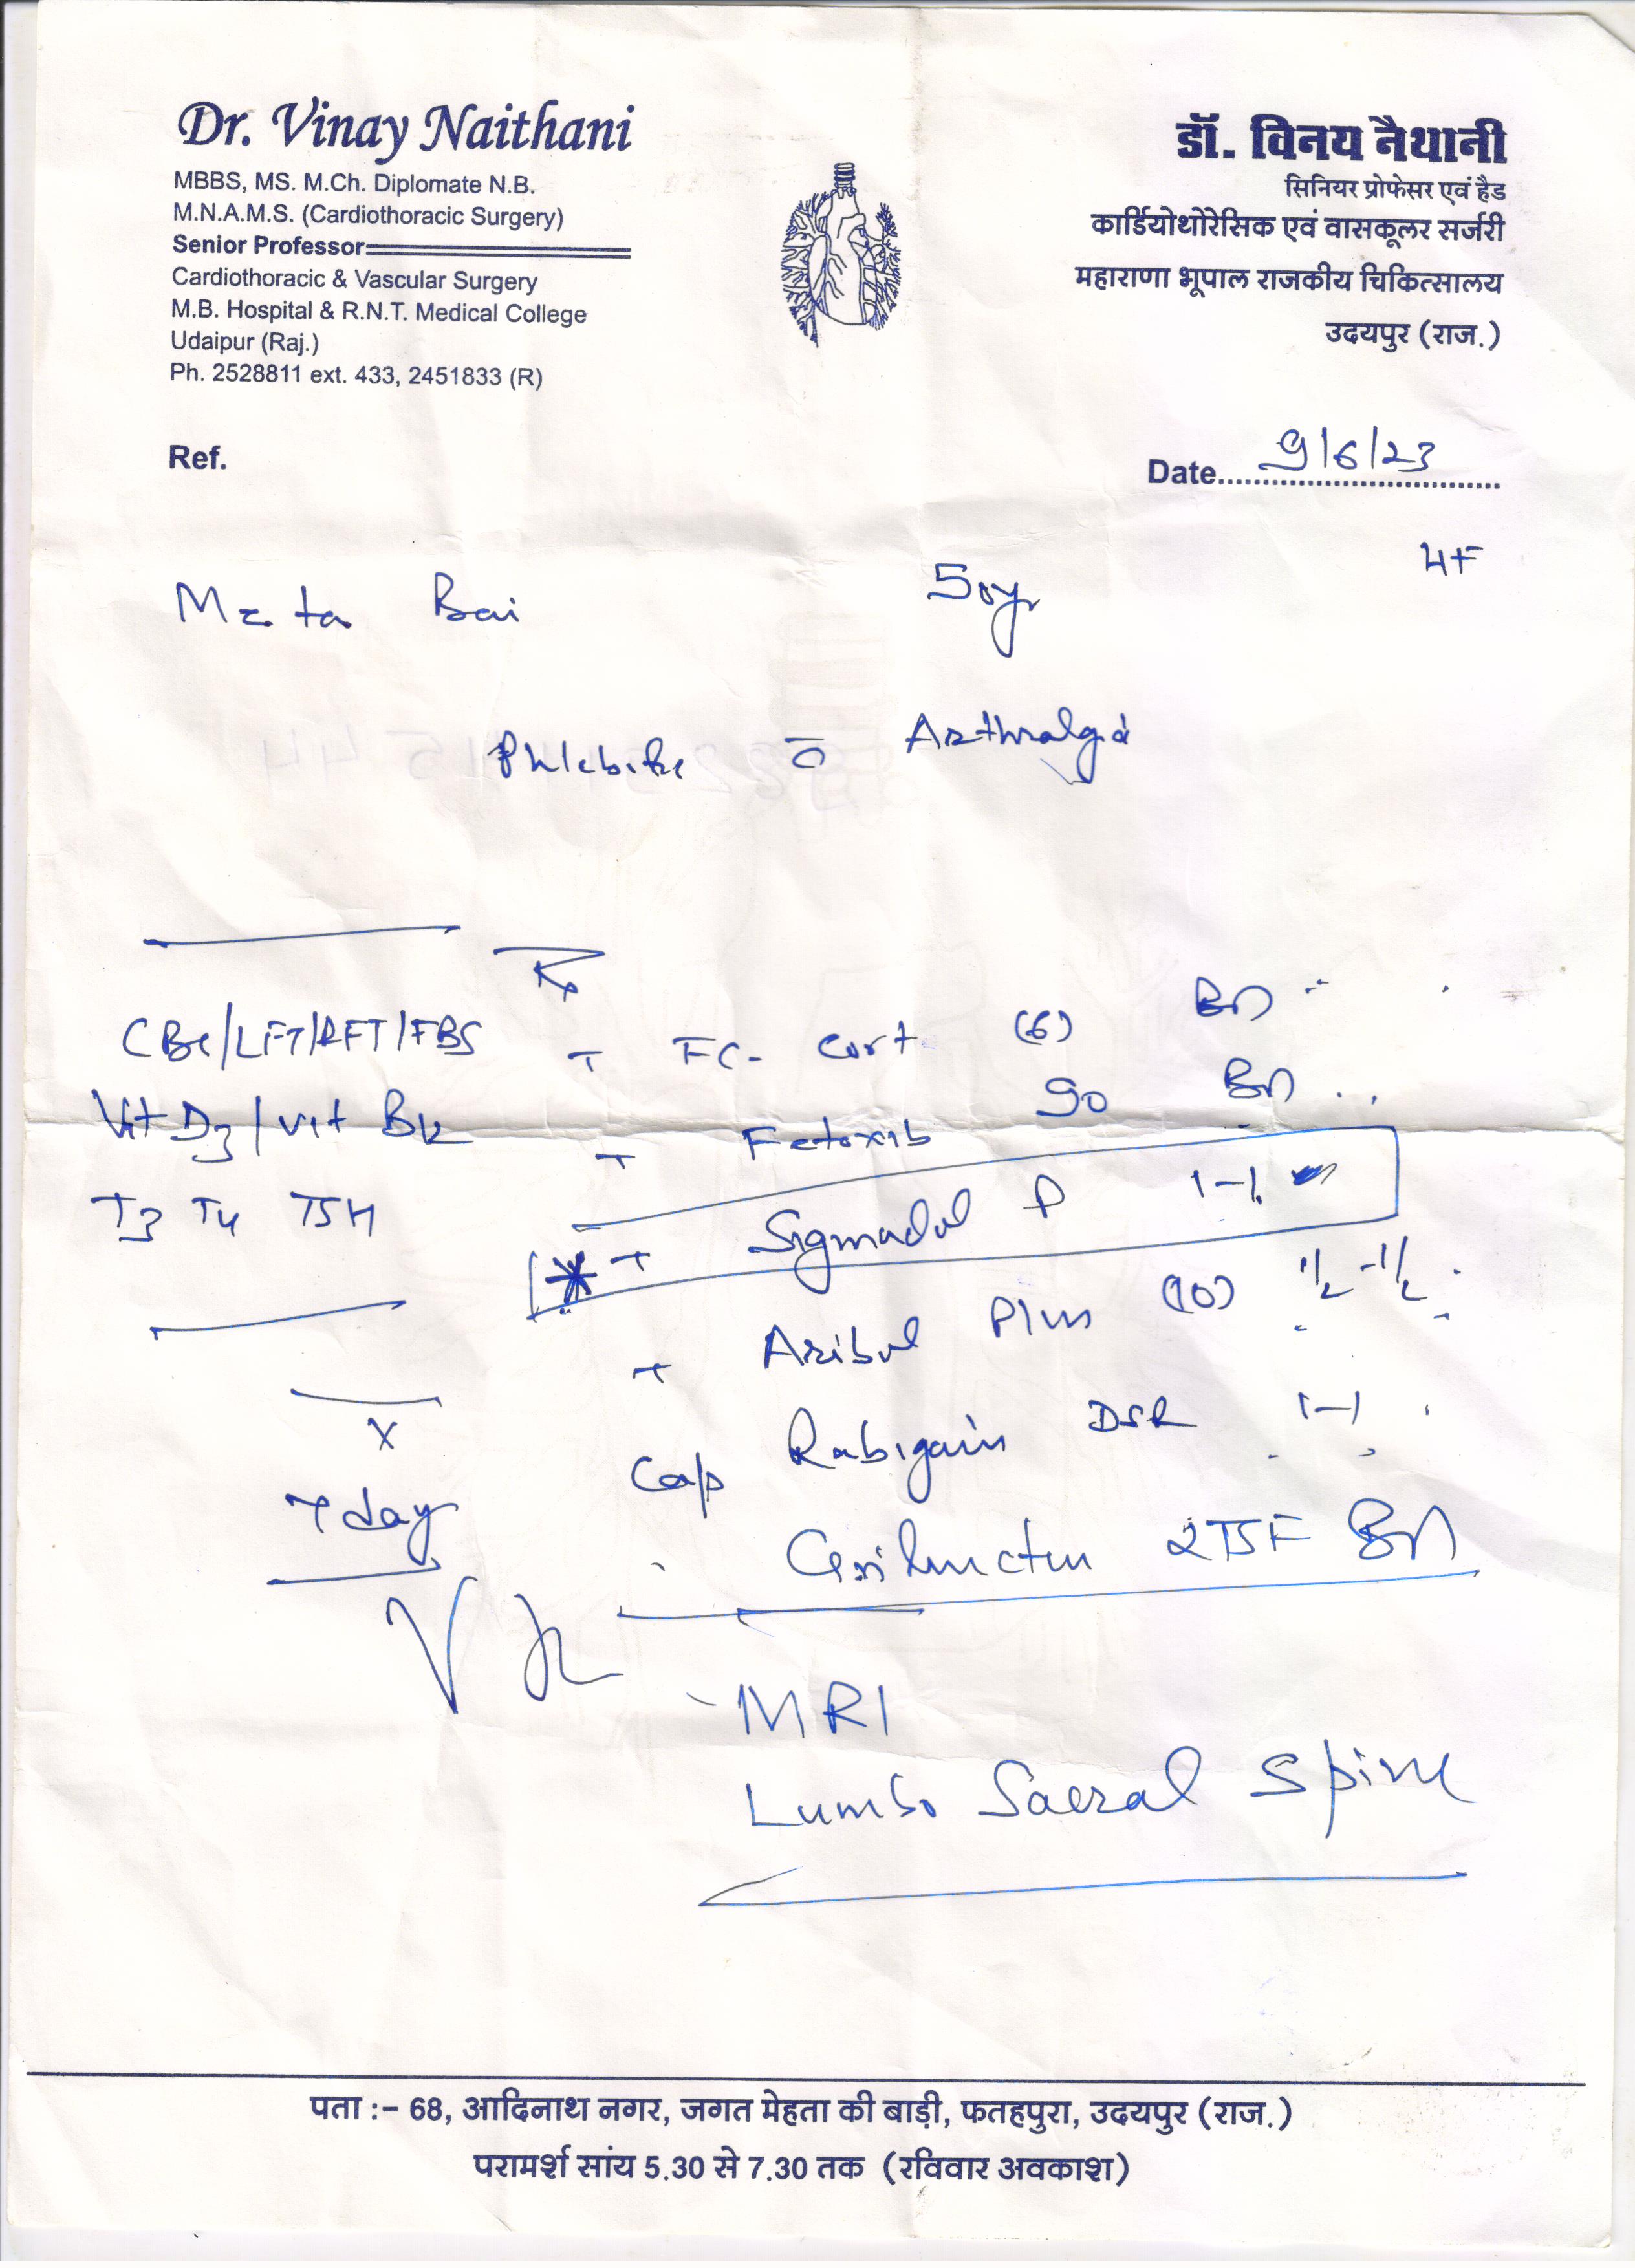 Dr. Vinay Naithani
MBBS, MS. M.Ch. Diplomate N.B.
M.N.A.M.S. (Cardiothoracic Surgery)
Senior Professor
Cardiothoracic & Vascular Surgery
M.B. Hospital & R.N.T. Medical College
Udaipur (Raj.)
Ph. 2528811 ext. 433, 2451833 (R)
डॉ. विनय नैथानी
सिनियर प्रोफेसर एवं हैड
कार्डियोथोरेसिक एवं वासकूलर सर्जरी
महाराणा भूपाल राजकीय चिकित्सालय
उदयपुर (राज.)
Ref.
Date 9/6/23
Bai 50yr
Arthralgia
Rx
CBC/LFT/RFT/FBS
Vit D3/Vit B12
T3 T4 TSH
x
7 day
T Cort (6) BD
T 90 BD
* T Sigmadol P 1-1
T Plus (10) 1/2-1/2
Cap Rabigain DSR 1-1
2TSF BD
MRI
Lumbo Sacral Spine
पता :- 68, आदिनाथ नगर, जगत मेहता की बाड़ी, फतहपुरा, उदयपुर (राज.)
परामर्श सांय 5.30 से 7.30 तक (रविवार अवकाश)